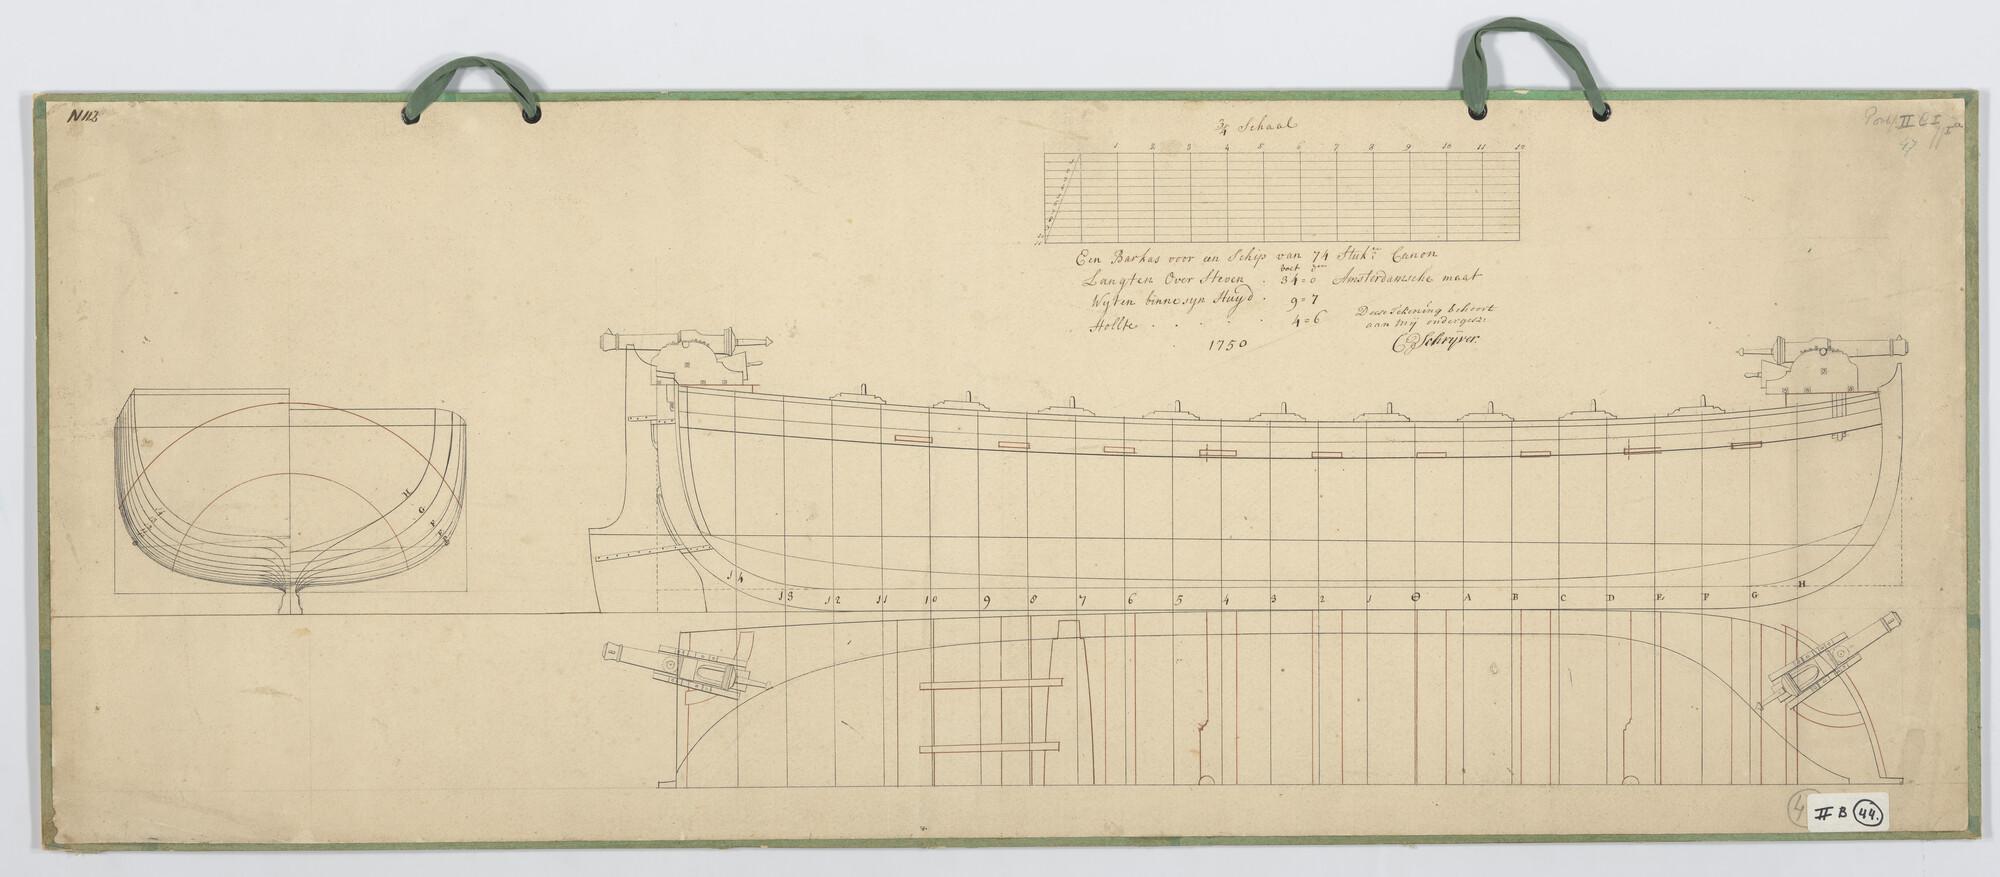 N 113
II C I
47
3/4 Schaal
1 2 3 4 5 6 7 8 9 10 11 12
Een Barkas voor een Schip van 74 Stukn Canon
voet dm
Langten Over Steven . 34=0 Amsterdamsche maat
Wyten binnesyn Huyd . 9=7
Hollte . . . . . 4=6
Deese Tekening behoort
aan mij ondergesz:
1750
C Schrijver.
H
G
F
E
14 13 12 11 10 9 8 7 6 5 4 3 2 1 ⊖ A B C D E F G H
4
II B 44.